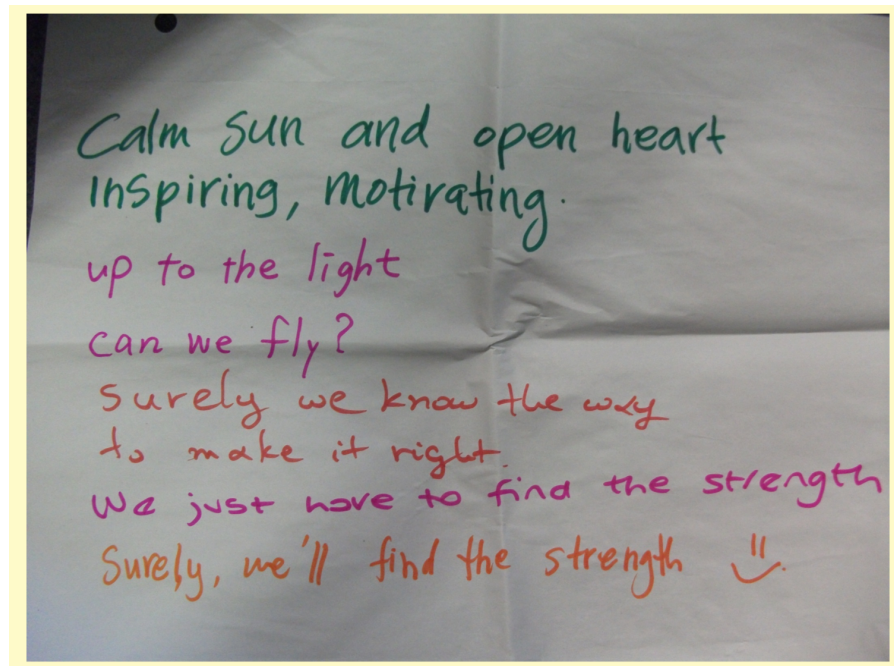 Calm sun and open heart
Inspiring, motivating.
up to the light
can we fly?
Surely we know the way
to make it right.
We just have to find the strength
Surely, we'll find the strength